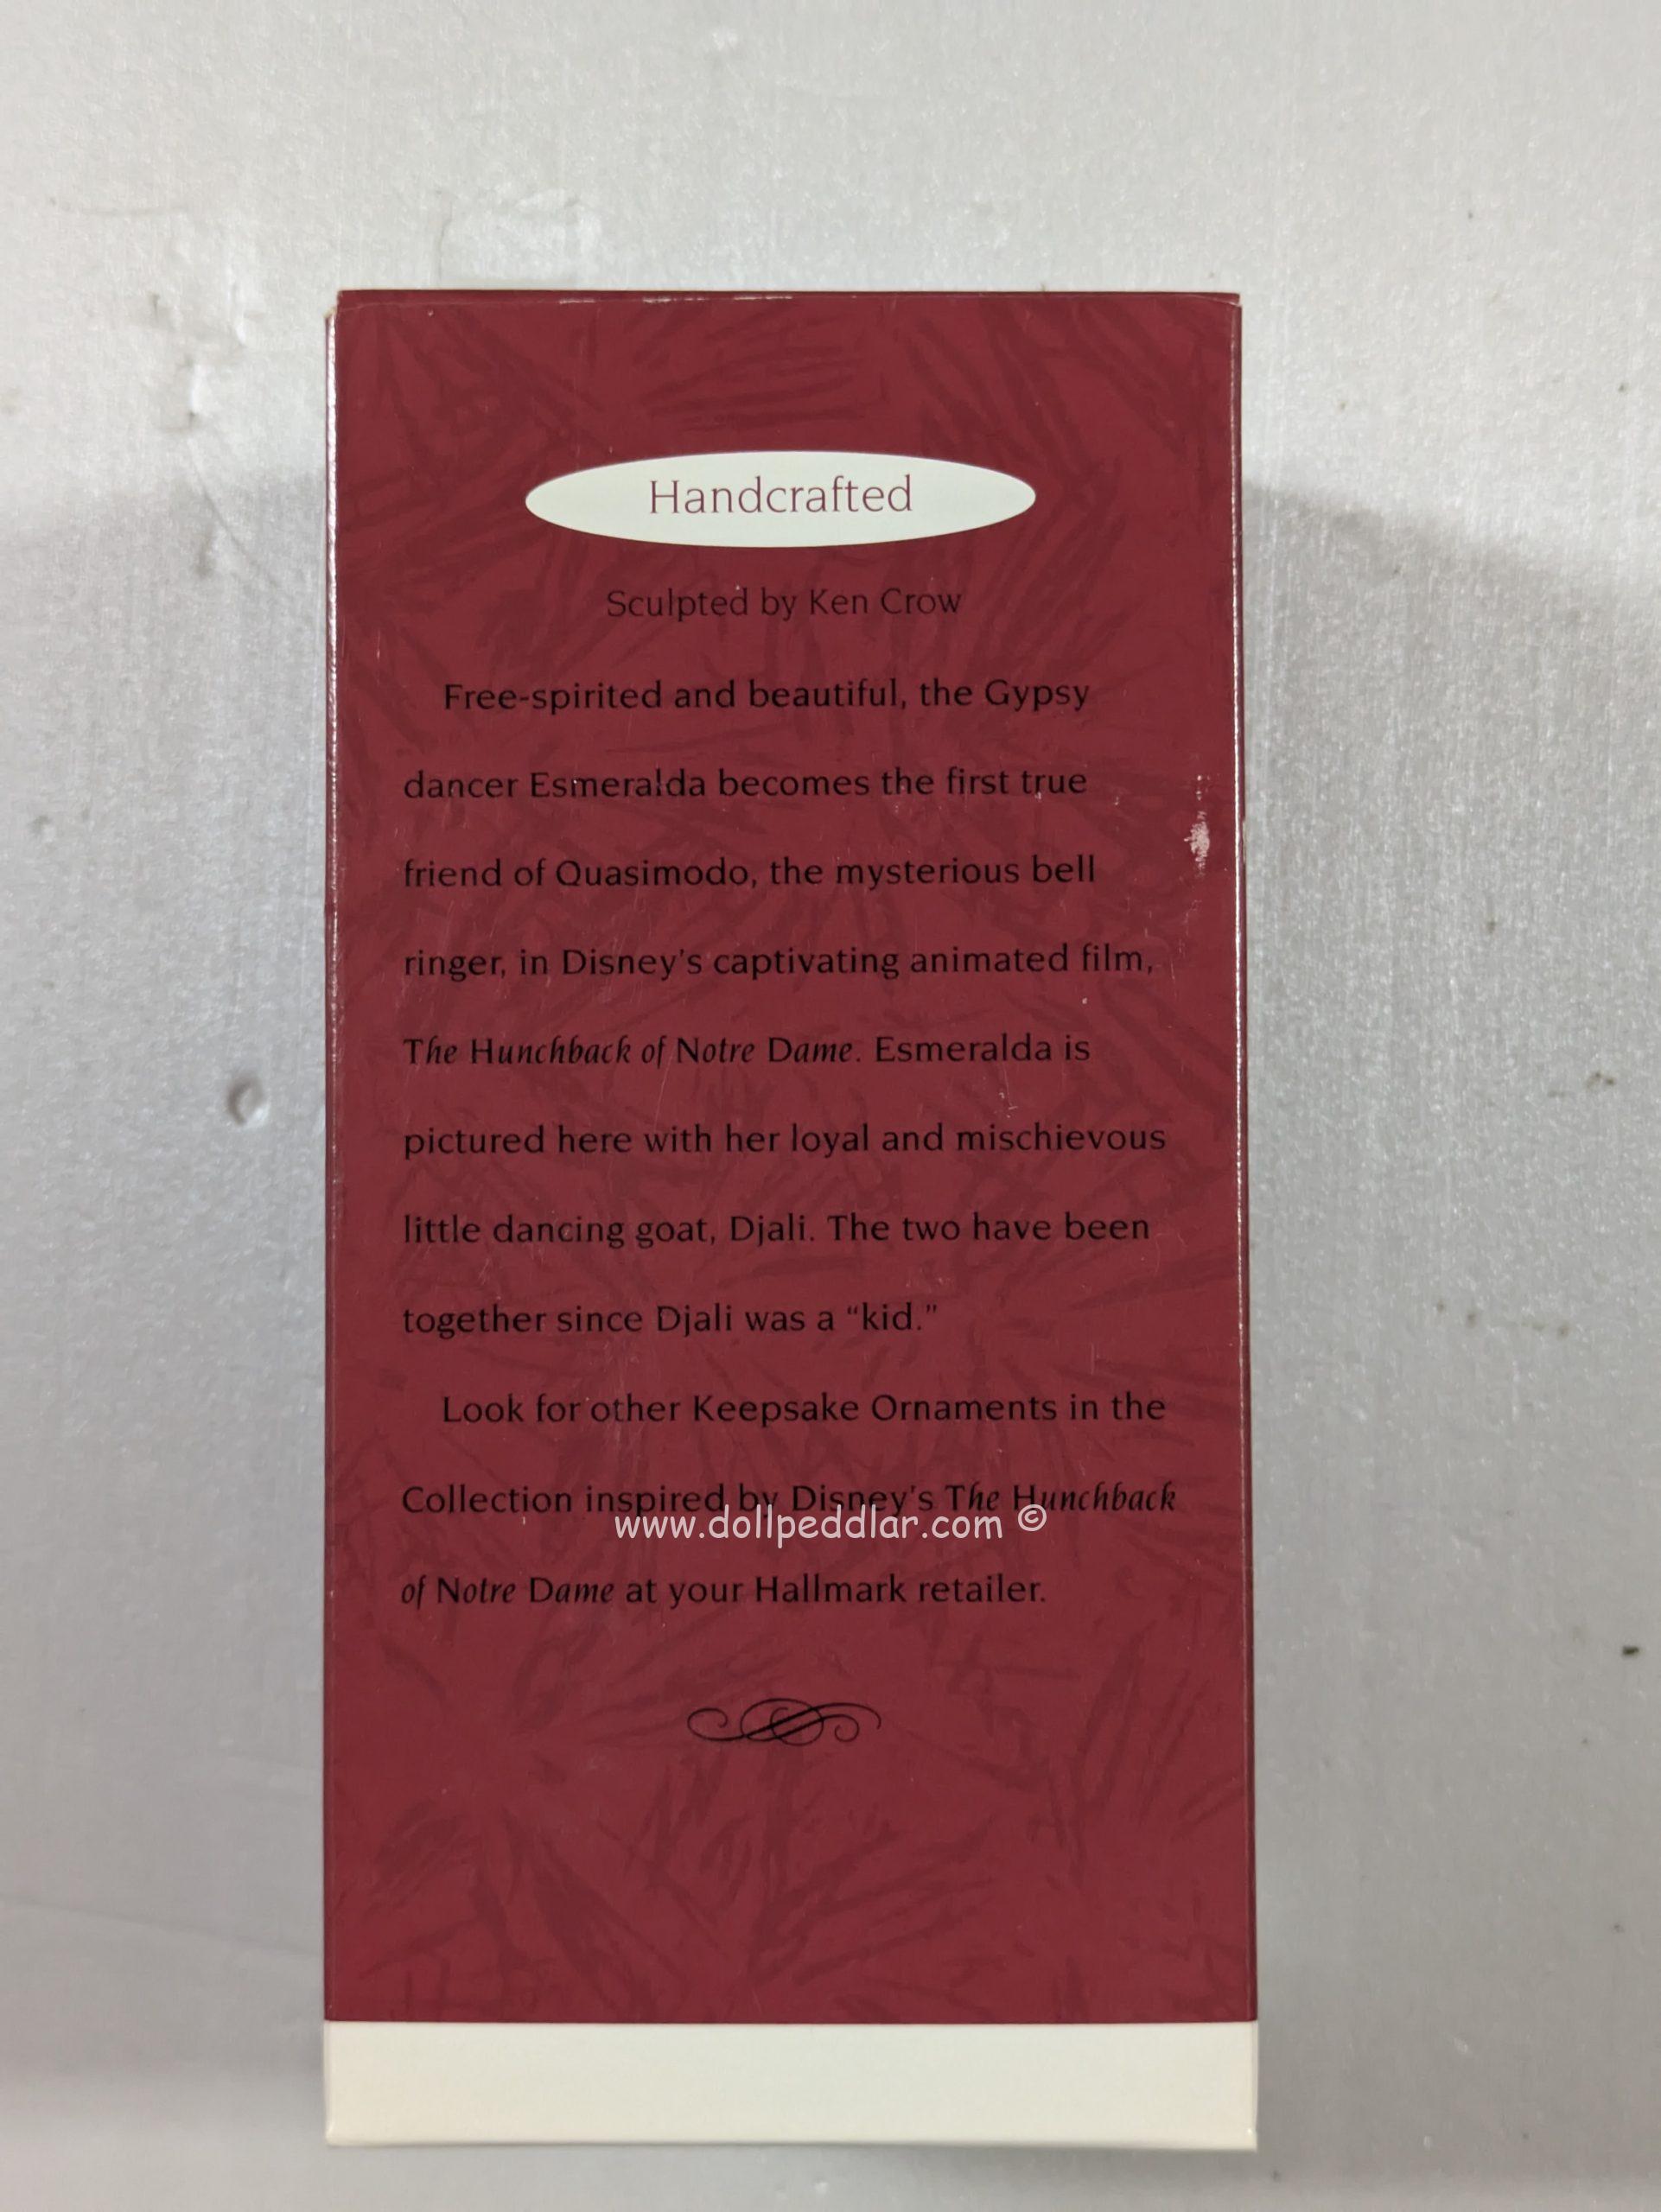 Handcrafted
Sculpted by Ken Crow
Free-spirited and beautiful, the Gypsy
dancer Esmeralda becomes the first true
friend of Quasimodo, the mysterious bell
ringer, in Disney's captivating animated film,
The Hunchback of Notre Dame. Esmeralda is
pictured here with her loyal and mischievous
little dancing goat, Djali. The two have been
together since Djali was a “kid.”
Look for other Keepsake Ornaments in the
Collection inspired by Disney's The Hunchback
www.dollpeddlar.com ©
of Notre Dame at your Hallmark retailer.